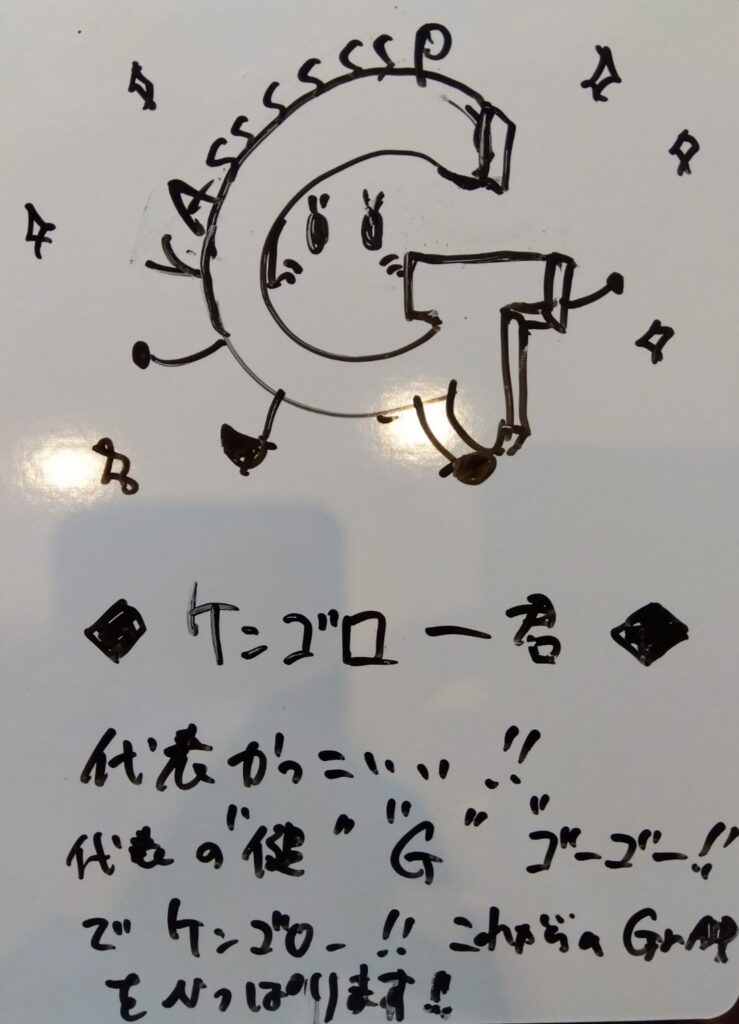 YASSSSSSP
◆ ケンゴロー君 ◆
代表かっこいいい!!
代表の"健" "G" "ゴーゴー!!
でケンゴロー!! これからの
をひっぱります!!